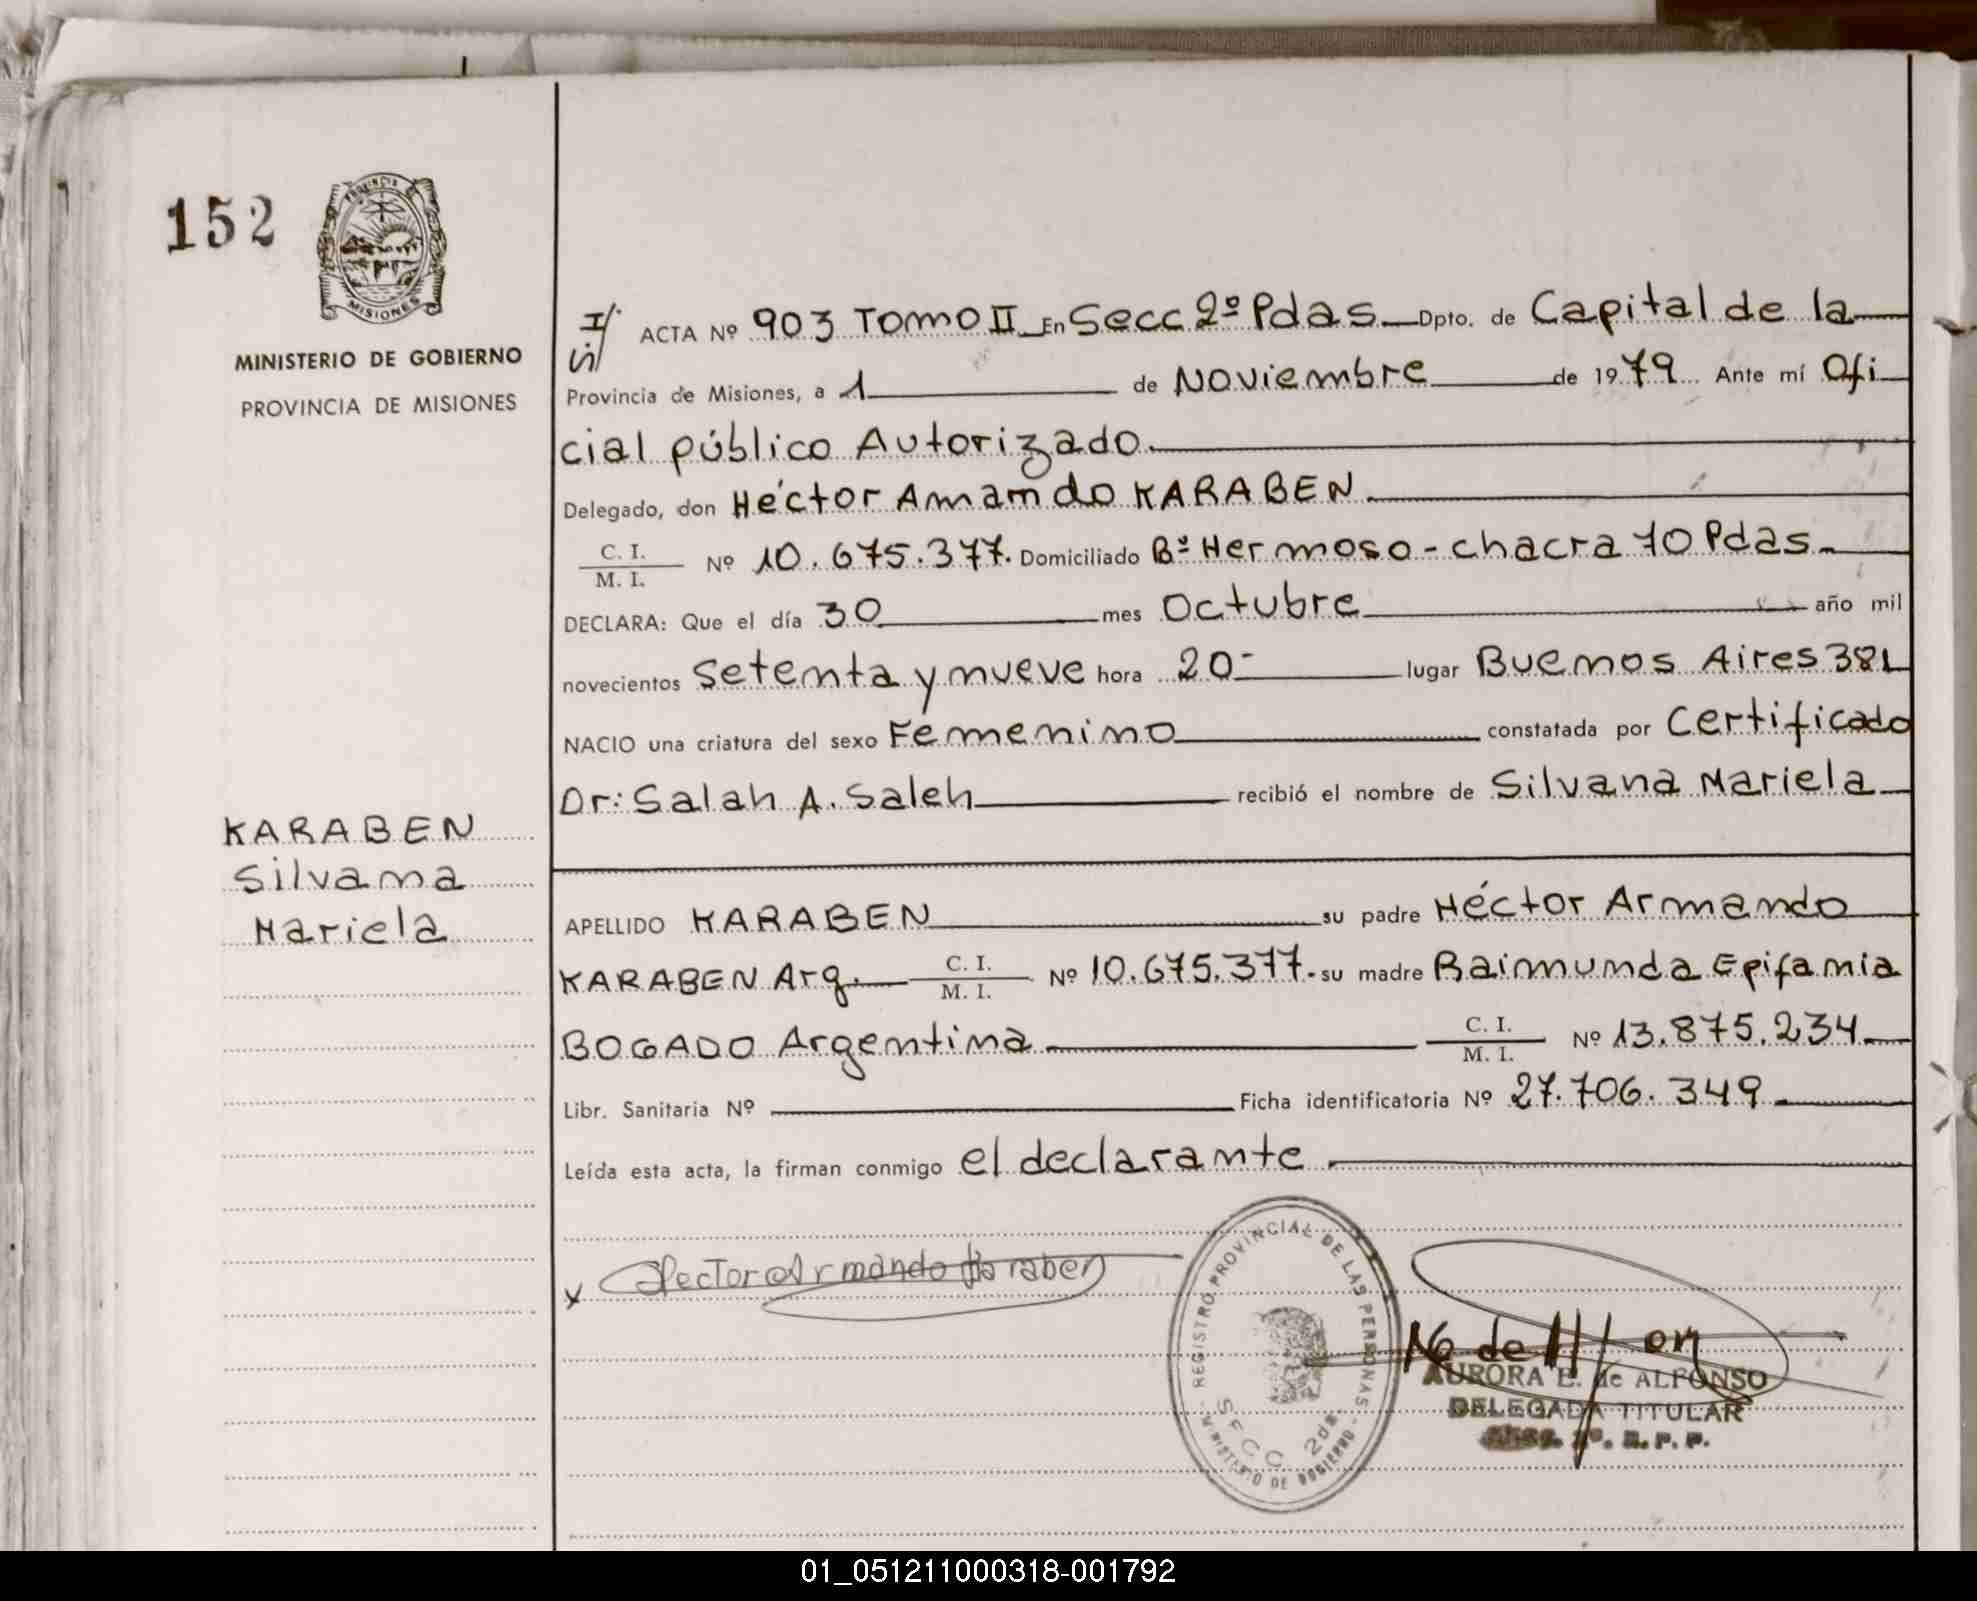 152
PROVINCIA DE
MISIONES
MINISTERIO DE GOBIERNO
PROVINCIA DE MISIONES
KARABEN
Silvana
Mariela
ACTA Nº 903 Tomo II En Secc 2º Pdas Dpto. de Capital de la
Provincia de Misiones, a 1 de Noviembre de 1979 Ante mí Ofi
cial público Autorizado
Delegado, don Héctor Amando KARABEN
C. I.
M. I. Nº 10.675.377. Domiciliado Bº Hermoso - chacra 70 Pdas.
DECLARA: Que el día 30 mes Octubre año mil
novecientos setenta y nueve hora 20- lugar Buenos Aires 381
NACIO una criatura del sexo Femenino constatada por Certificado
Dr: Salah A. Saleh recibió el nombre de Silvana Mariela
APELLIDO KARABEN su padre Héctor Armando
KARABEN Arg. C. I.
M. I. Nº 10.675.377. su madre Raimunda Epifania
BOGADO Argentina C. I.
M. I. Nº 13.875.234
Libr. Sanitaria Nº Ficha identificatoria Nº 27.706.349
Leída esta acta, la firman conmigo el declarante
x Hector Armando Karaben
REGISTRO PROVINCIAL DE LAS PERSONAS
SECC 2da.
MINISTERIO DE GOBIERNO
AURORA E. de ALFONSO
DELEGADA TITULAR
R. P. P.
01_051211000318-001792